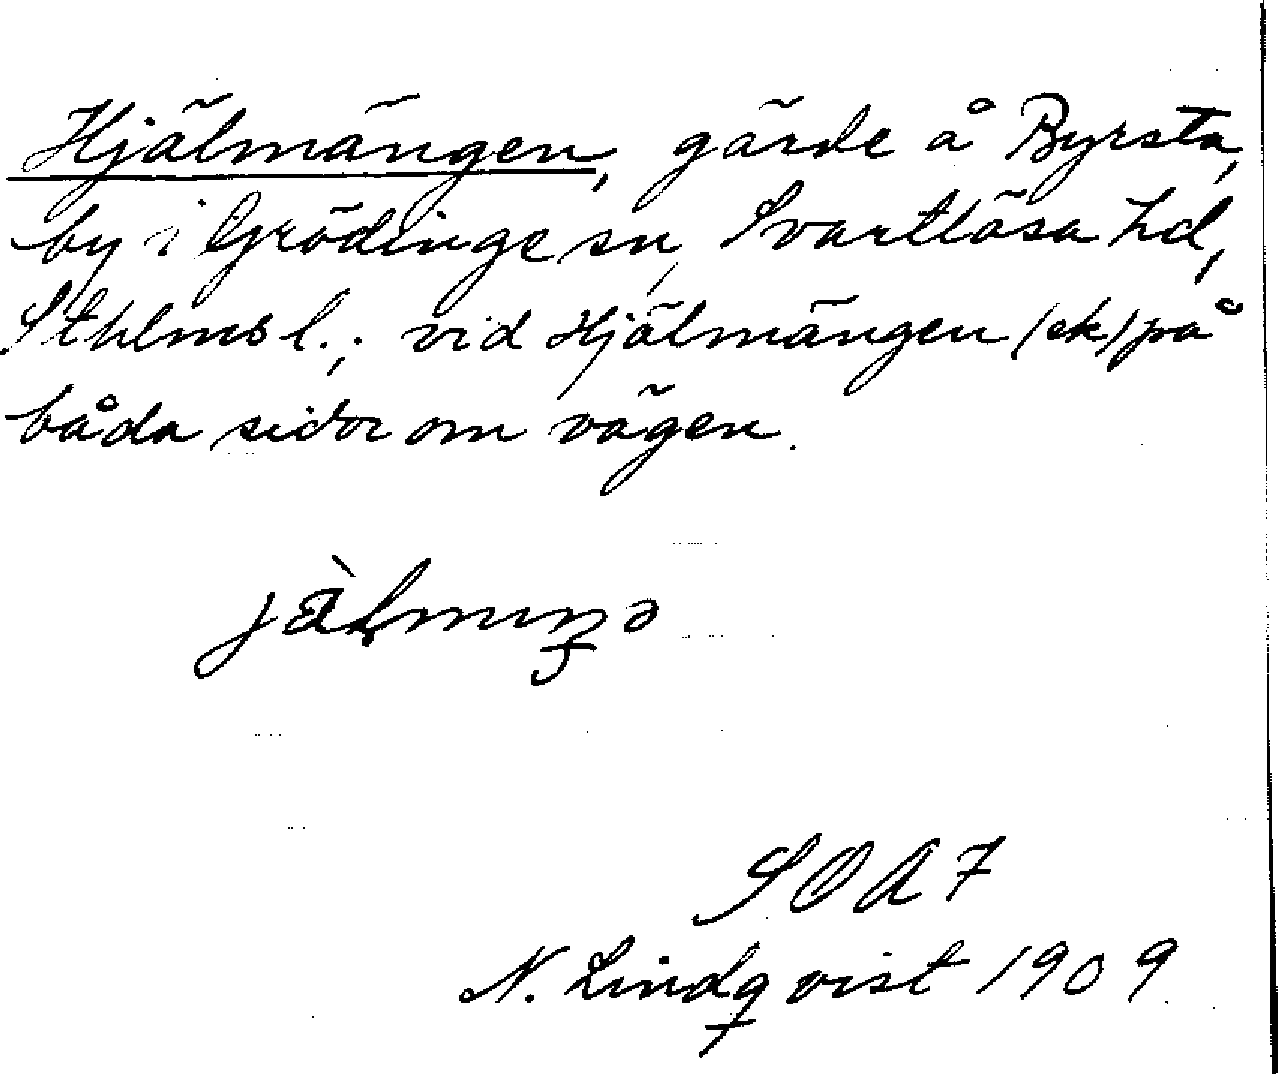 Hjälmängen, gärde å Byrsta,
by i Grödinge sn, Svartlösa hd,
Sthlms l.; vid Hjälmängen (ek) på
båda sidor om vägen.
SOA 7
N. Lindqvist 1909